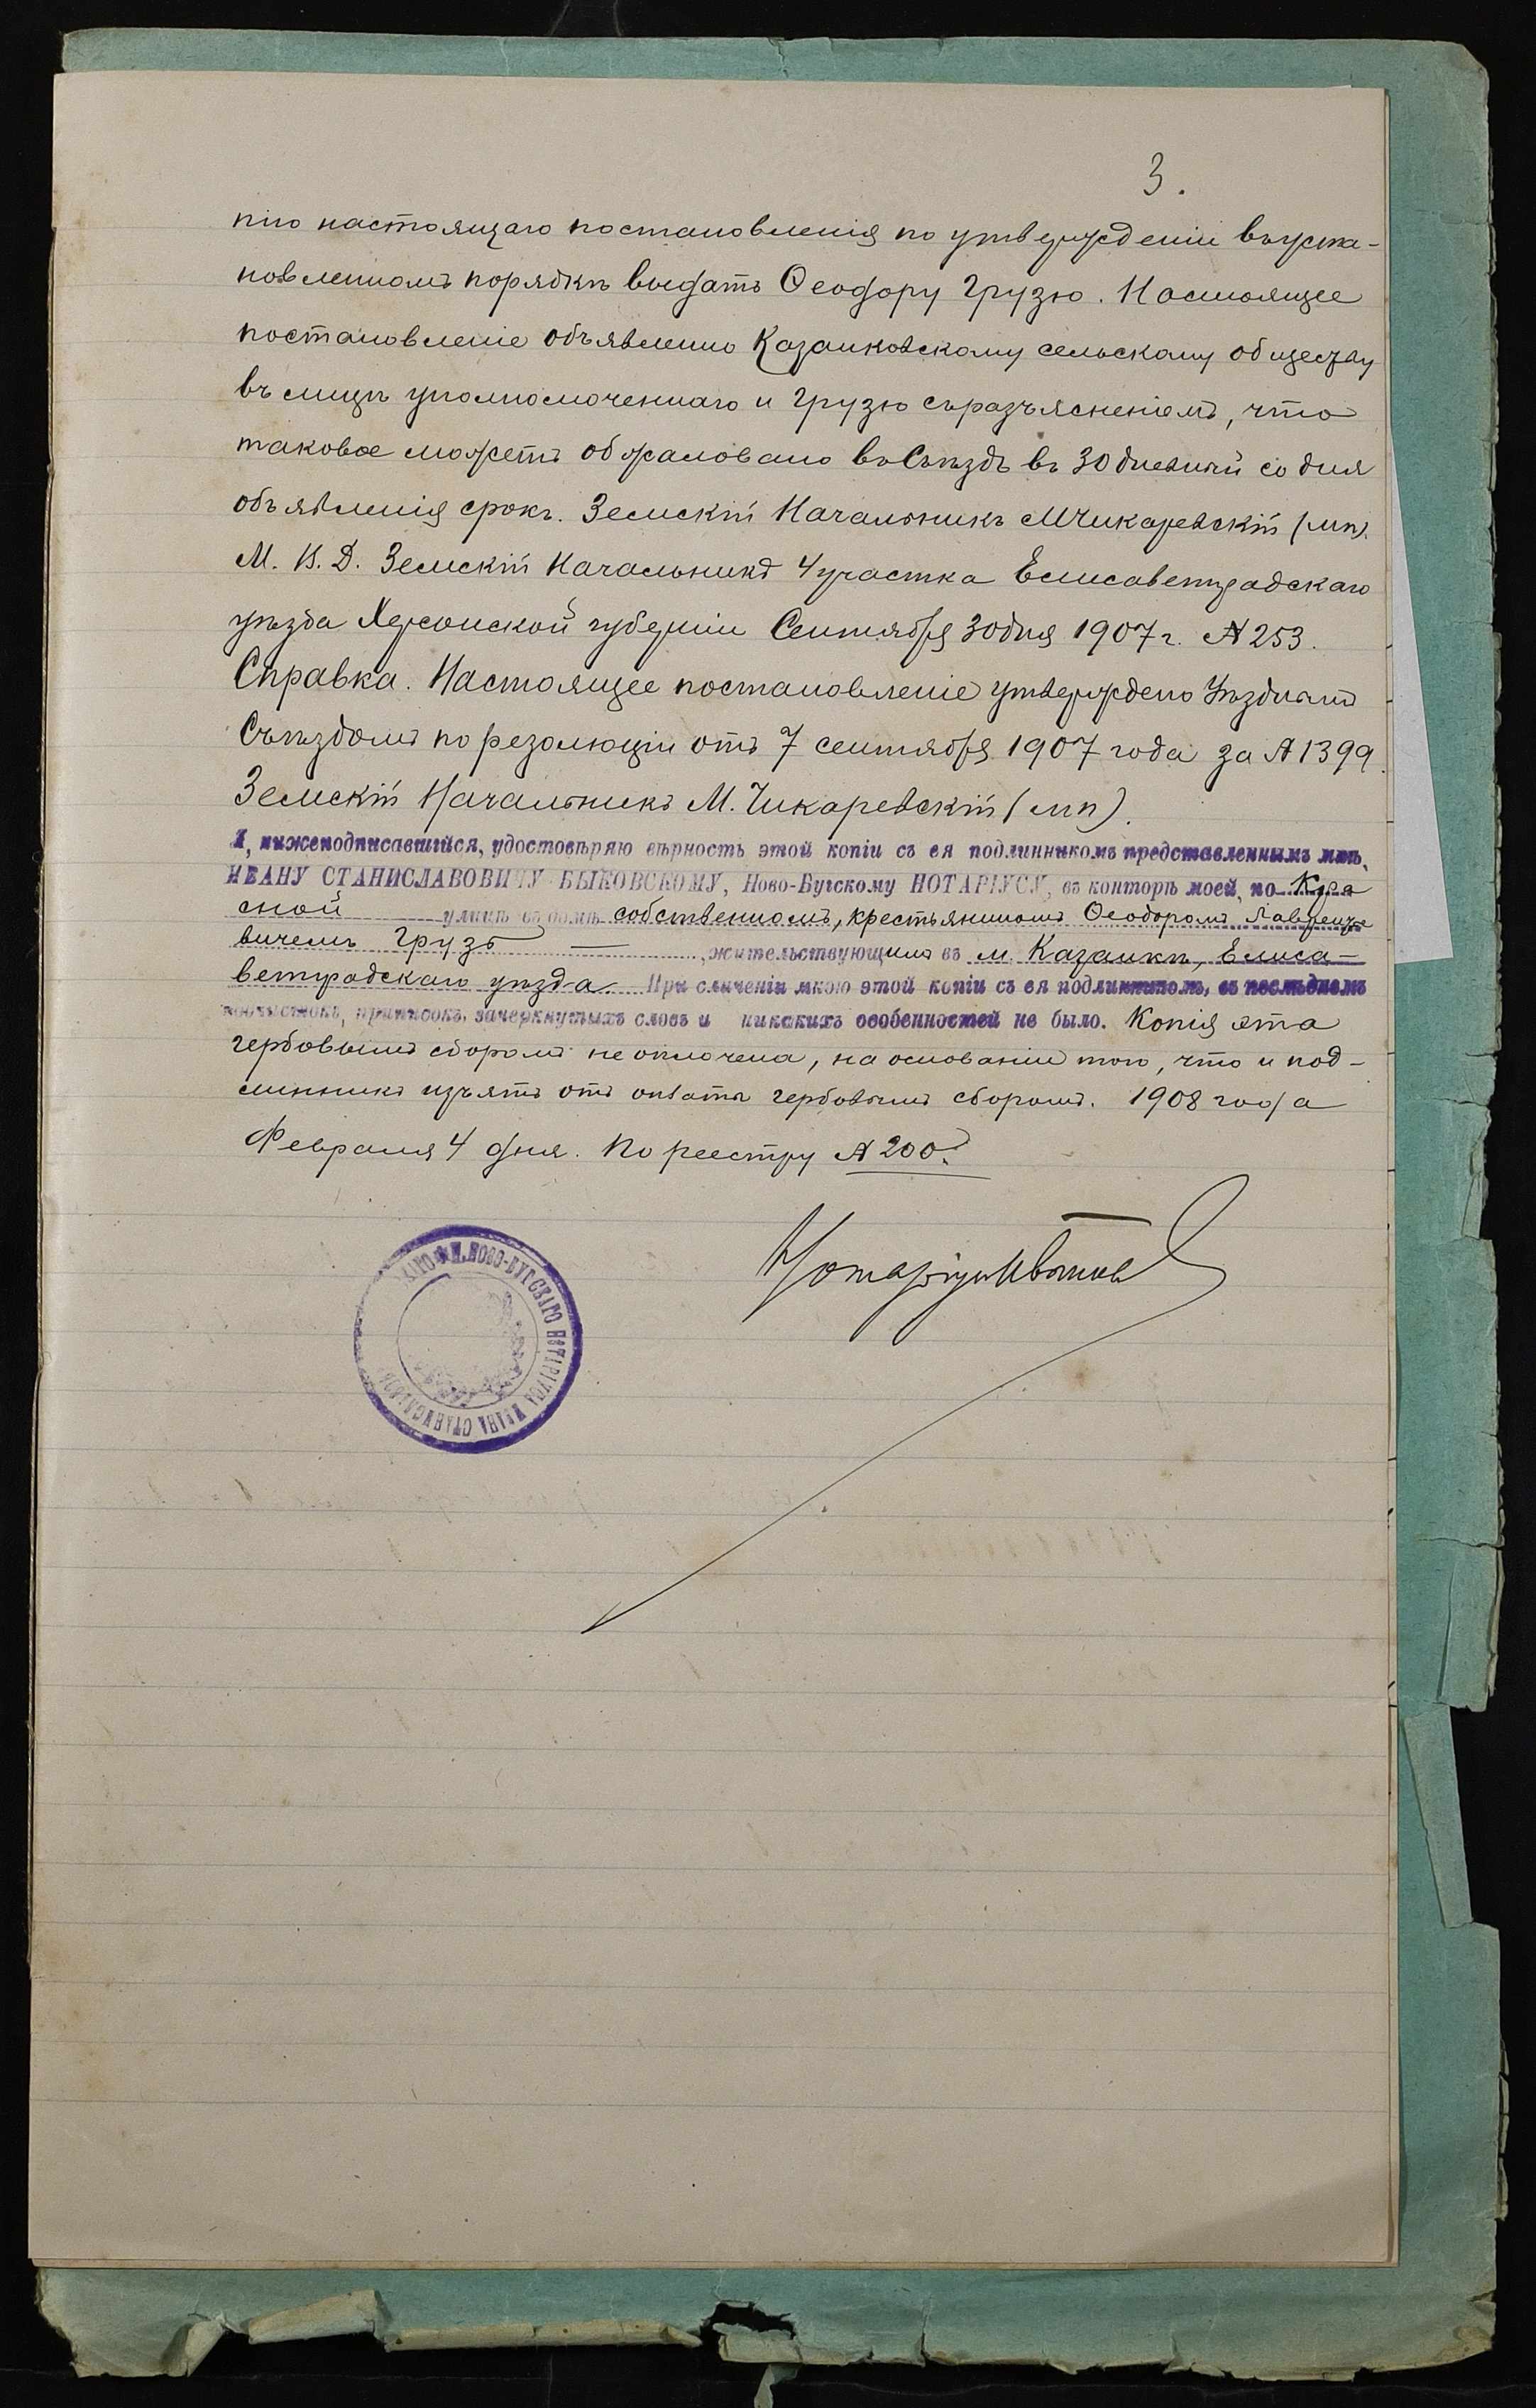 3.
пію настоящаго постановленія по утвержденіи въ уста-
новленномъ порядкѣ выдать Ѳеодору Грузю. Настоящее
постановленіе объявлено Казанковскому сельскому обществу
въ лицѣ уполномоченнаго и Грузю съ разъясненіемъ, что
таковое можетъ обжаловано въ Съѣздъ въ 30 дневный со дня
объявленія срокъ. Земскій Начальникъ М Чикаревскій (мп).
М. В. Д. Земскій Начальникъ 4 участка Елисаветградскаго
уѣзда Херсонской губерніи Сентября 30 дня 1907 г. № 253.
Справка. Настоящее постановленіе утверждено Уѣзднымъ
Съѣздомъ по резолюціи отъ 7 сентября 1907 года за № 1399.
Земскій Начальникъ М. Чикаревскій (мп).
Я, нижеподписавшійся, удостовѣряю вѣрность этой копіи съ ея подлинникомъ представленнымъ мнѣ,
ИВАНУ СТАНИСЛАВОВИЧУ БЫКОВСКОМУ, Ново-Бугскому НОТАРІУСУ, въ конторѣ моей, по Кра
сной улицѣ въ домѣ собственномъ, крестьяниномъ Ѳеодоромъ Лавренть
вичемъ Грузь —, жительствующимъ въ м. Казанкѣ, Елиса-
ветградскаго уѣзда При сличеніи мною этой копіи съ ея подлинникомъ, въ послѣднемъ
подчистокъ, приписокъ, зачеркнутыхъ словъ и никакихъ особенностей не было. Копія эта
гербовымъ сборомъ не оплочена, на основаніи того, что и под-
линникъ изъятъ отъ оплаты гербовымъ сборомъ. 1908 года
Февраля 4 дня. По реестру № 200.
Нотаріусъ
НОВО-БУГСКАГО НОТАРІУСА ИВАНА СТАНИСЛАВОВ